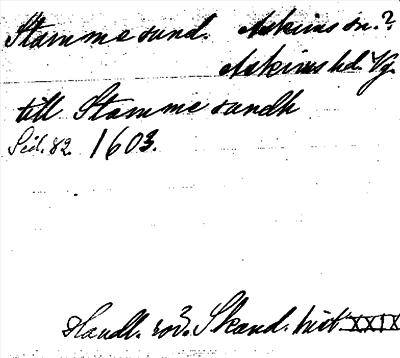 Stammesund. Askims sn.?
Askims hd. Vg.
till Stamme sundh
Sid. 82. 1603.
Handl. rör. Skand. hist. XXIX